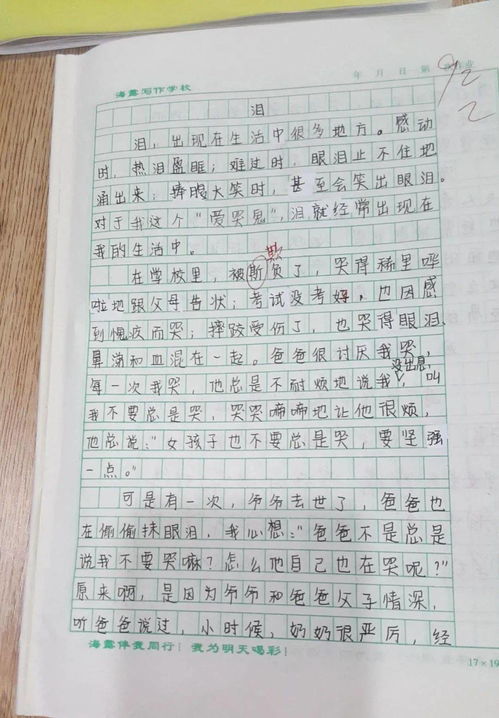 海露写作学校
年 月 日 第
92
泪
泪，出现在生活中很多地方。感动
时，热泪盈眶；难过时，眼泪止不住地
涌出来；捧腹大笑时，甚至会笑出眼泪。
对于我这个"爱哭鬼"，泪就经常出现在
我的生活中。
欺
在学校里，被斯负了，哭得稀里哗
啦地跟父母告状；考试没考好，也因感
到愧疚而哭；摔跤受伤了，也哭得眼泪、
鼻涕和血混在一起。爸爸很讨厌我哭，
没出息，
每一次我哭，他总是不耐烦地说我叫
我不要总是哭，哭哭啼啼地让他很烦，
他总说："女孩子也不要总是哭，要坚强
一点。"
可是有一次，爷爷去世了，爸爸也
在偷偷抹眼泪，我心想："爸爸不是总是
说我不要哭嘛？怎么他自己也在哭呢？"
原来啊，是因为爷爷和爸爸父子情深，
听爸爸说过，小时候，奶奶很严厉，经
海露伴我同行！我为明天喝彩！
17×19